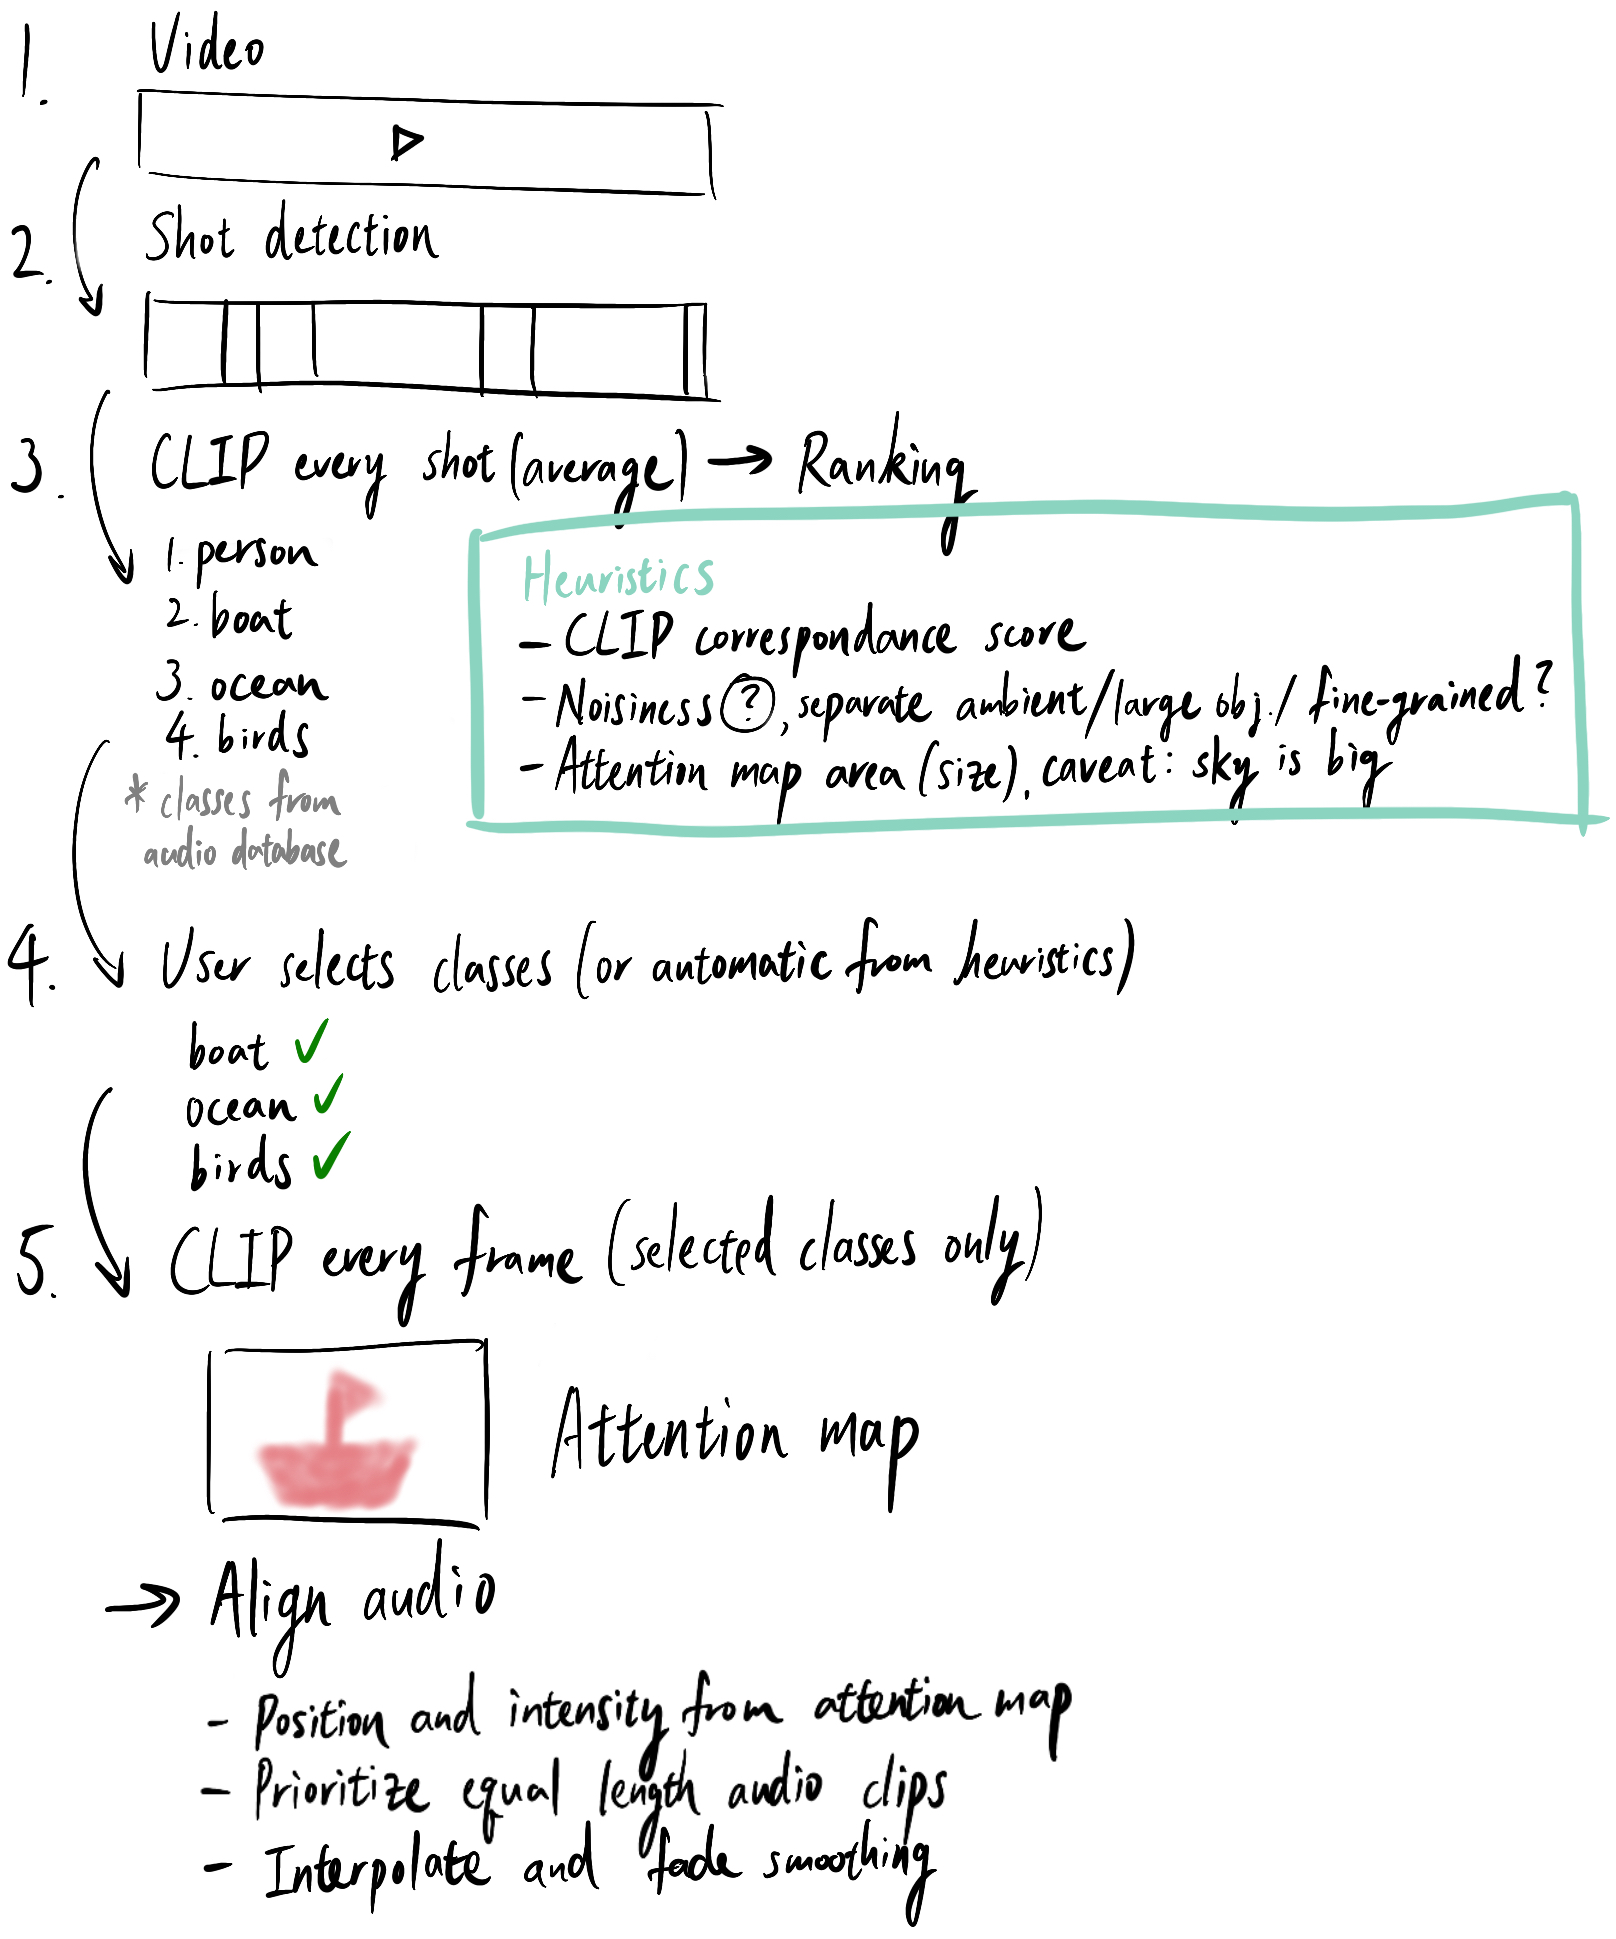 1. Video
2. Shot detection
3. CLIP every shot (average) → Ranking
1. person
2. boat
3. ocean
4. birds
* classes from
audio database
Heuristics
- CLIP correspondance score
- Noisiness ?, separate ambient/large obj./fine-grained?
- Attention map area (size), caveat: sky is big
4. User selects classes (or automatic from heuristics)
boat ✓
ocean ✓
birds ✓
5. CLIP every frame (selected classes only)
Attention map
→ Align audio
- Position and intensity from attention map
- Prioritize equal length audio clips
- Interpolate and fade smoothing